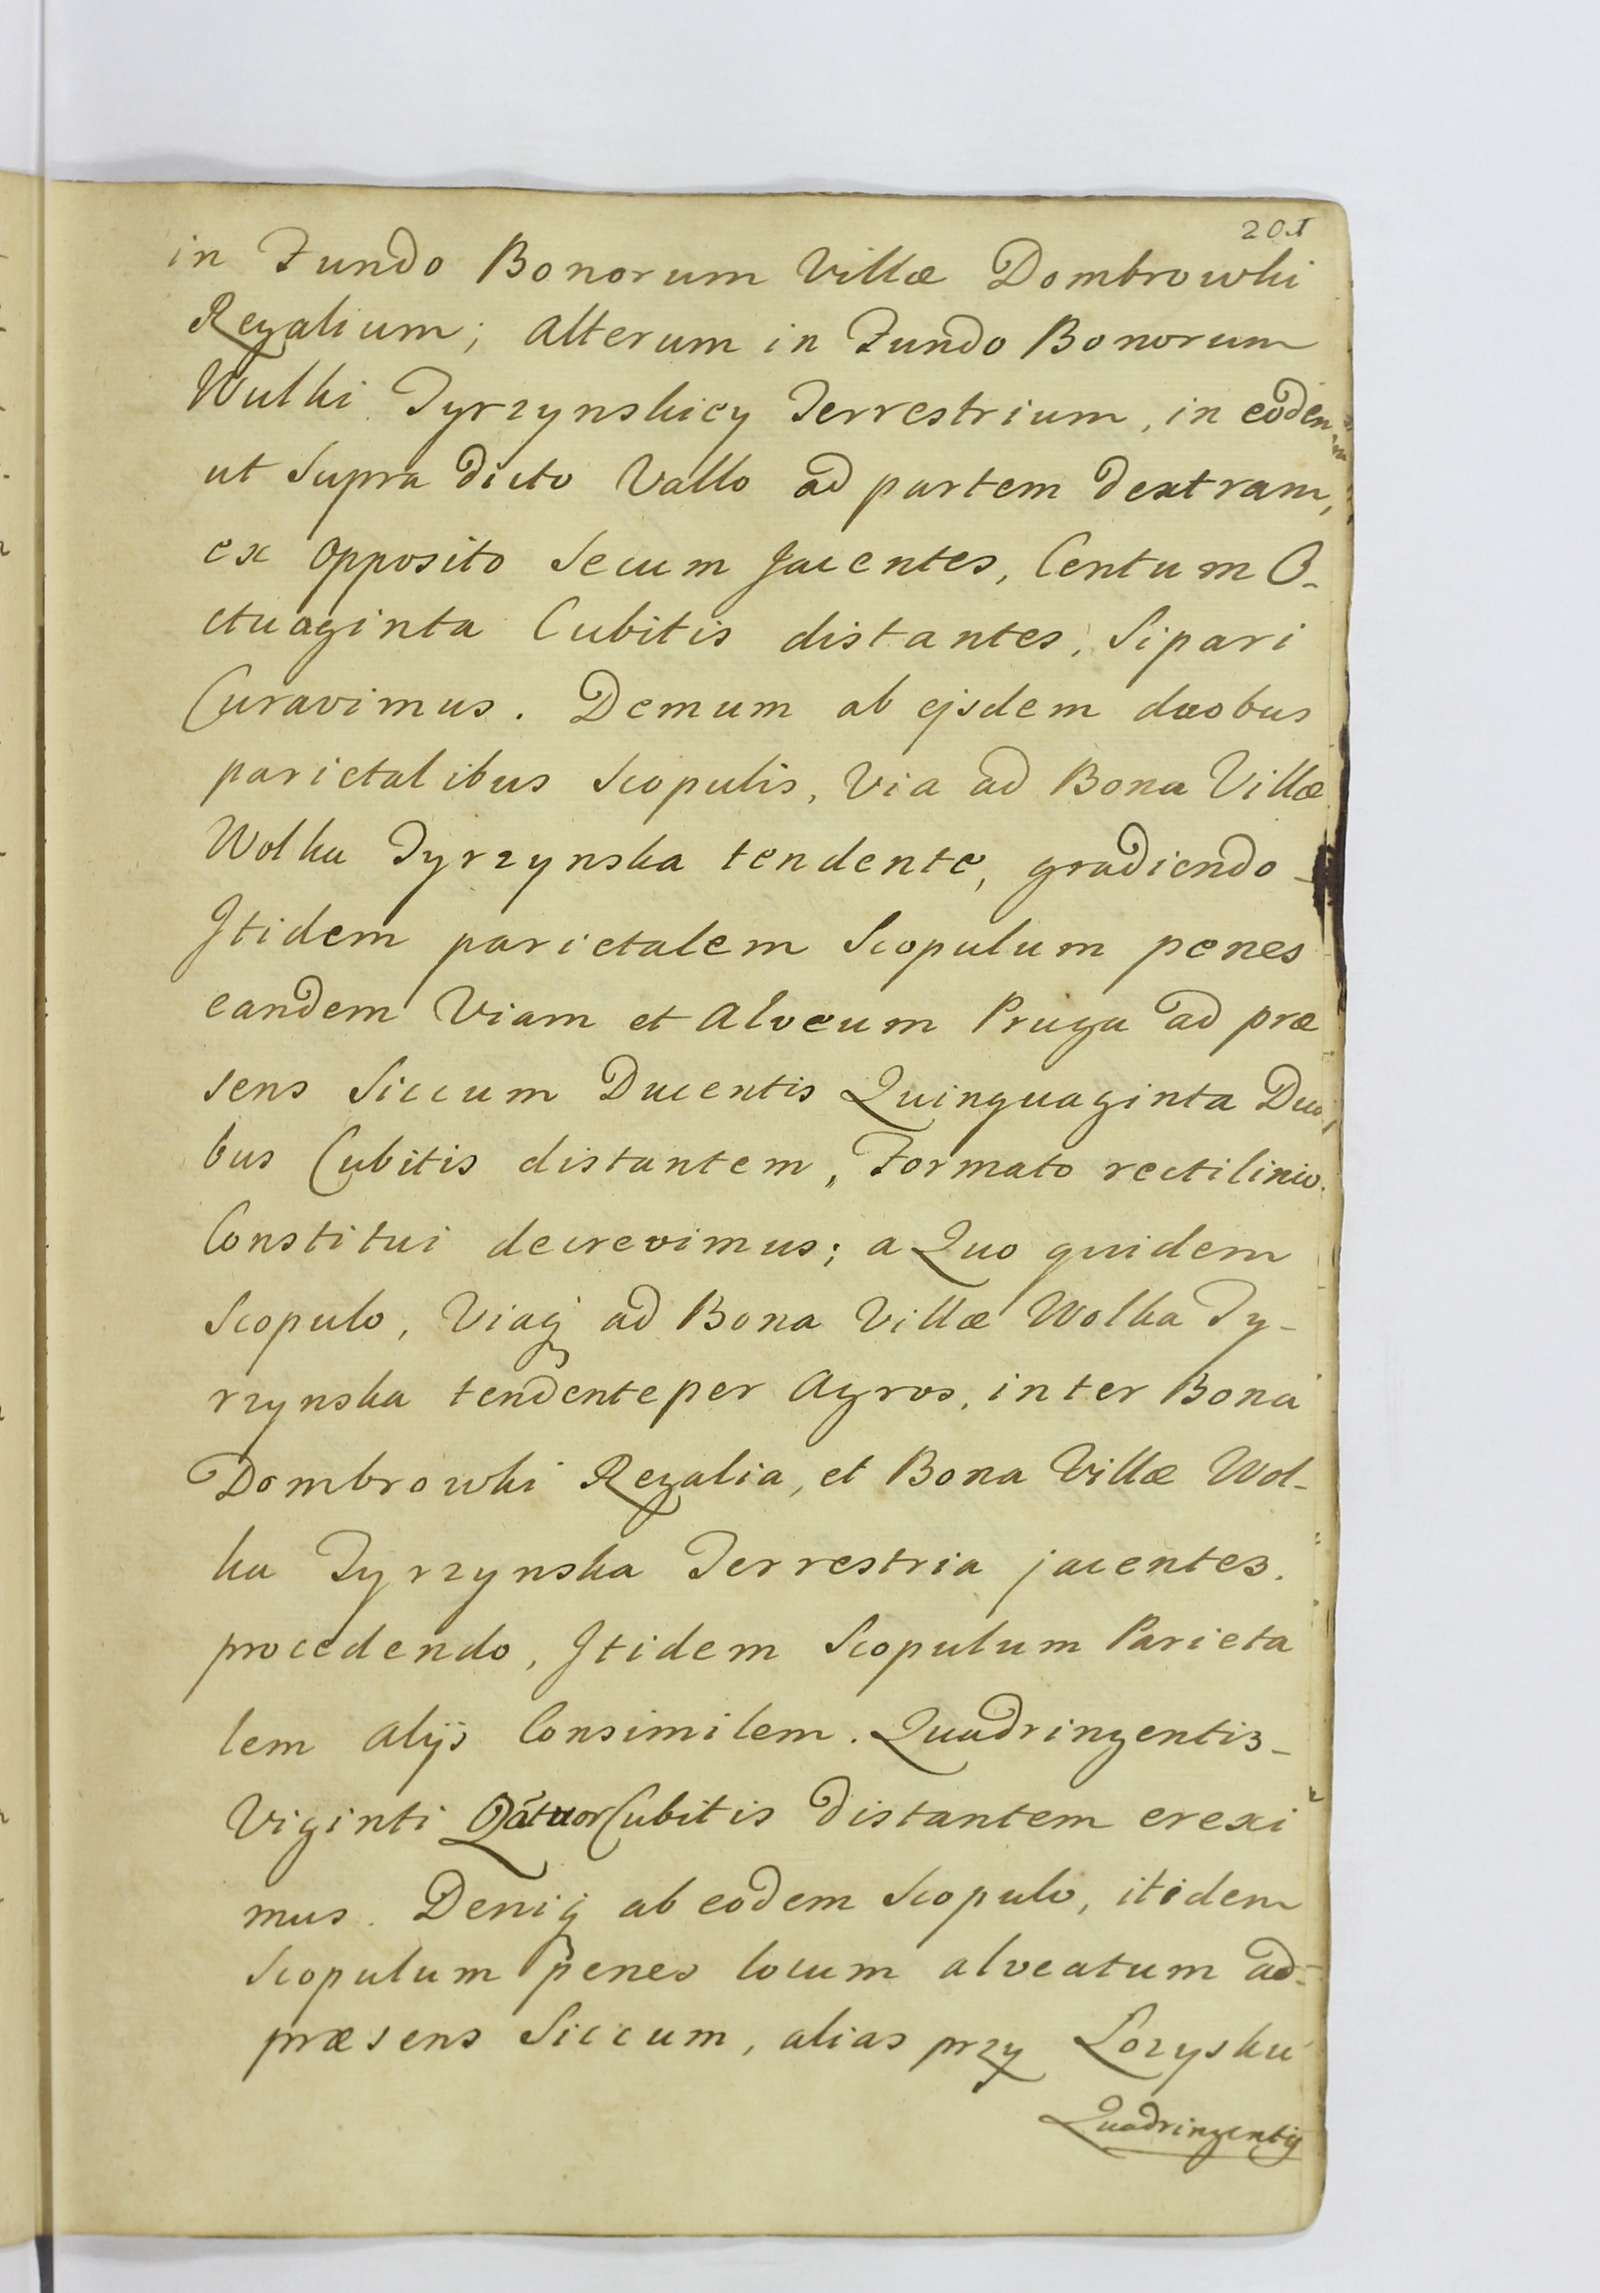 201
in Fundo Bonorum Villæ Dombrowki
Regalium; alterum in Fundo Bonorum
Wulki Tyrzynskiey Terrestrium, in eodem
ut Supra dicto Vallo ad partem dextram,
ex opposito Secum Jacentes, Centum O-
ctuaginta Cubitis distantes, Sipari
Curavimus. Demum ab ejsdem duobus
parietalibus Scopulis, Via ad Bona Villæ
Wolka Tyrzynska tendente, gradiendo -
Itidem parietalem Scopulum penes
eandem Viam et alveum Pruga ad præ
sens Siccum Ducentis Quinquaginta Duo,
bus Cubitis distantem, Formato rectilinio.
Constitui decrevimus; a Quo quidem
Scopulo, Viaq ad Bona Villæ Wolka Ty-
rzynska tendente per Agros, inter Bona
Dombrowki Regalia, et Bona Villæ Wol-
ka Tyrzynska Terrestria jacentes.
procedendo, Itidem Scopulum Parieta
lem alijs Consimilem. Quadringentis -
Viginti Qátuor Cubitis distantem erexi
mus. Deniq ab eodem Scopulo, itidem
Scopulum penes locum alveatum ad-
præsens Siccum, alias przy Lozysku
Quadringentis